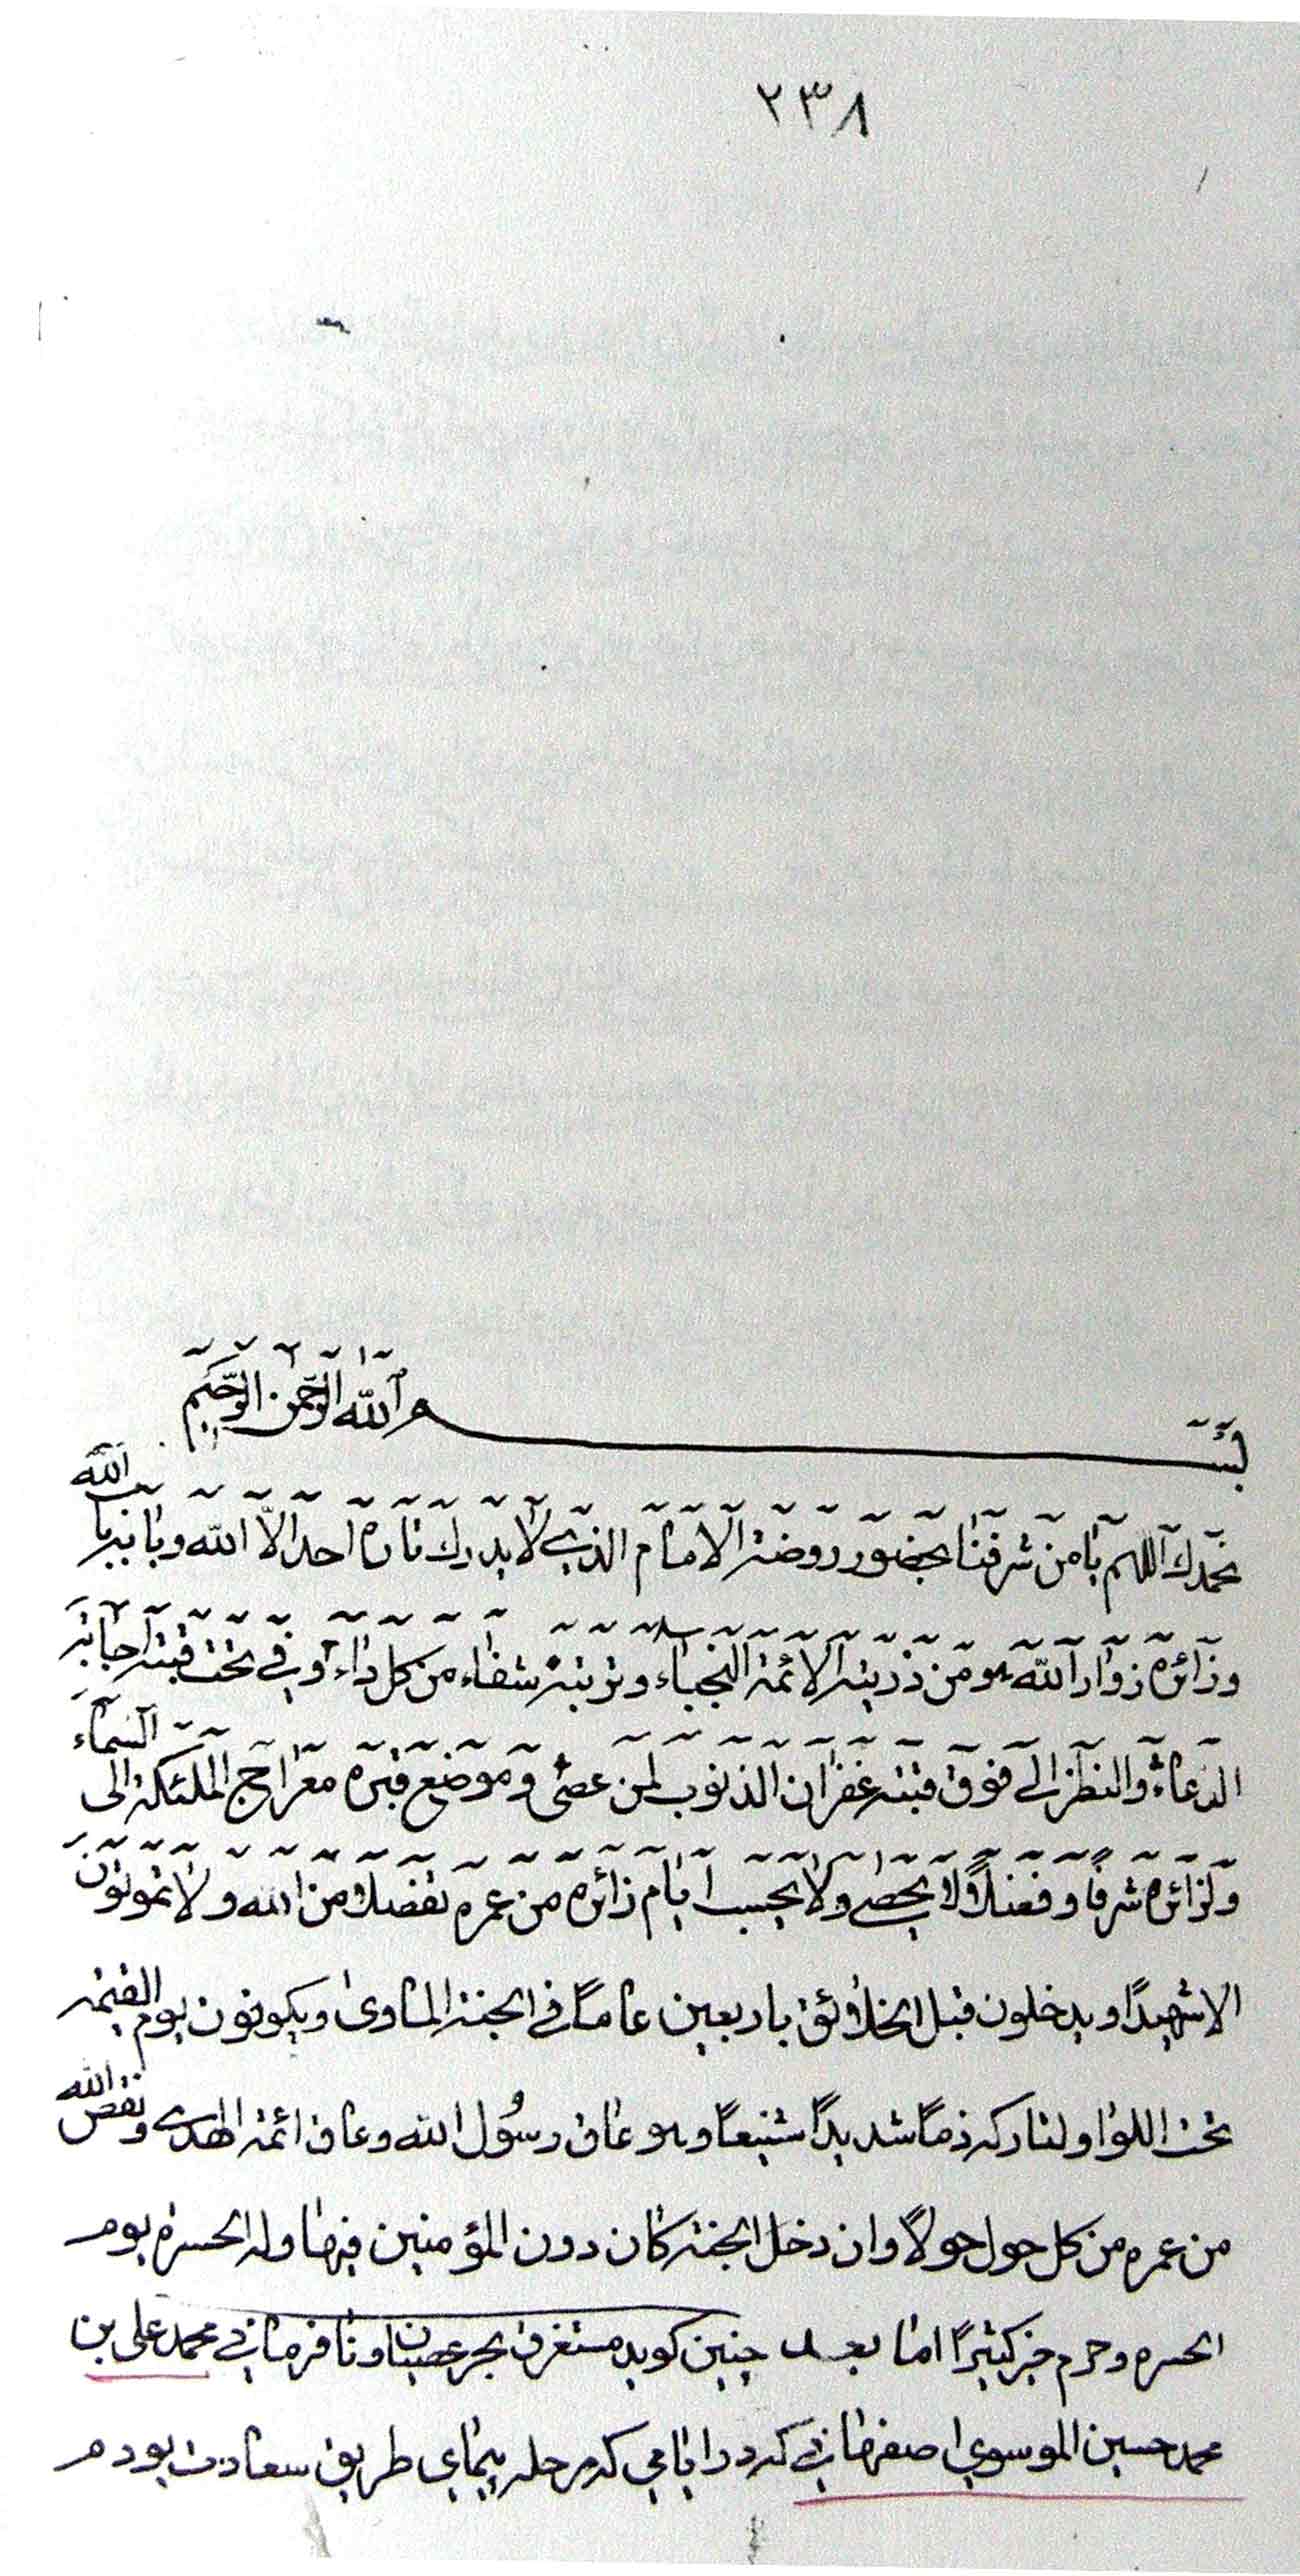 ٢٣٨
بسم الله الرحمن الرحيم
نحمدك اللهم يا من شرفنا بحضور روضة الامام الذي لا يدرك ثاره احد الا الله ويا من بباب الله
وزائره زوار الله هو من ذريته الائمة النجباء وتربته شفاء من كل داء وفي تحت قبته اجابة
الدعاء والنظر الى فوق قبته غفران الذنوب لمن عصى وموضع قبره معراج الملئكة الى السماء
ولزائره شرفا وفضلا لا يحصى ولا يحسب ايام زائره من عمره تفضلا من الله ولا تموتون
الا شهيدا ويدخلون قبل الخلائق باربعين عاما في الجنة الماوى ويكونون يوم القيمة
تحت اللوا ولتاركه ذما شديدا شنيعا وهو عاق رسول الله وعاق ائمة الهدى ونقص الله
من عمره من كل حول حولا وان دخل الجنة كان دون المؤمنين فيها وله الحسرة يوم
الحسره وحرم خير كثيرا اما بعد چنين كويد مستغرق بحر عصيان و نافرمانى محمد على بن
محمد حسين الموسوى اصفهانى كه در ايامى كه مرحله پيماى طريق سعادت بودم